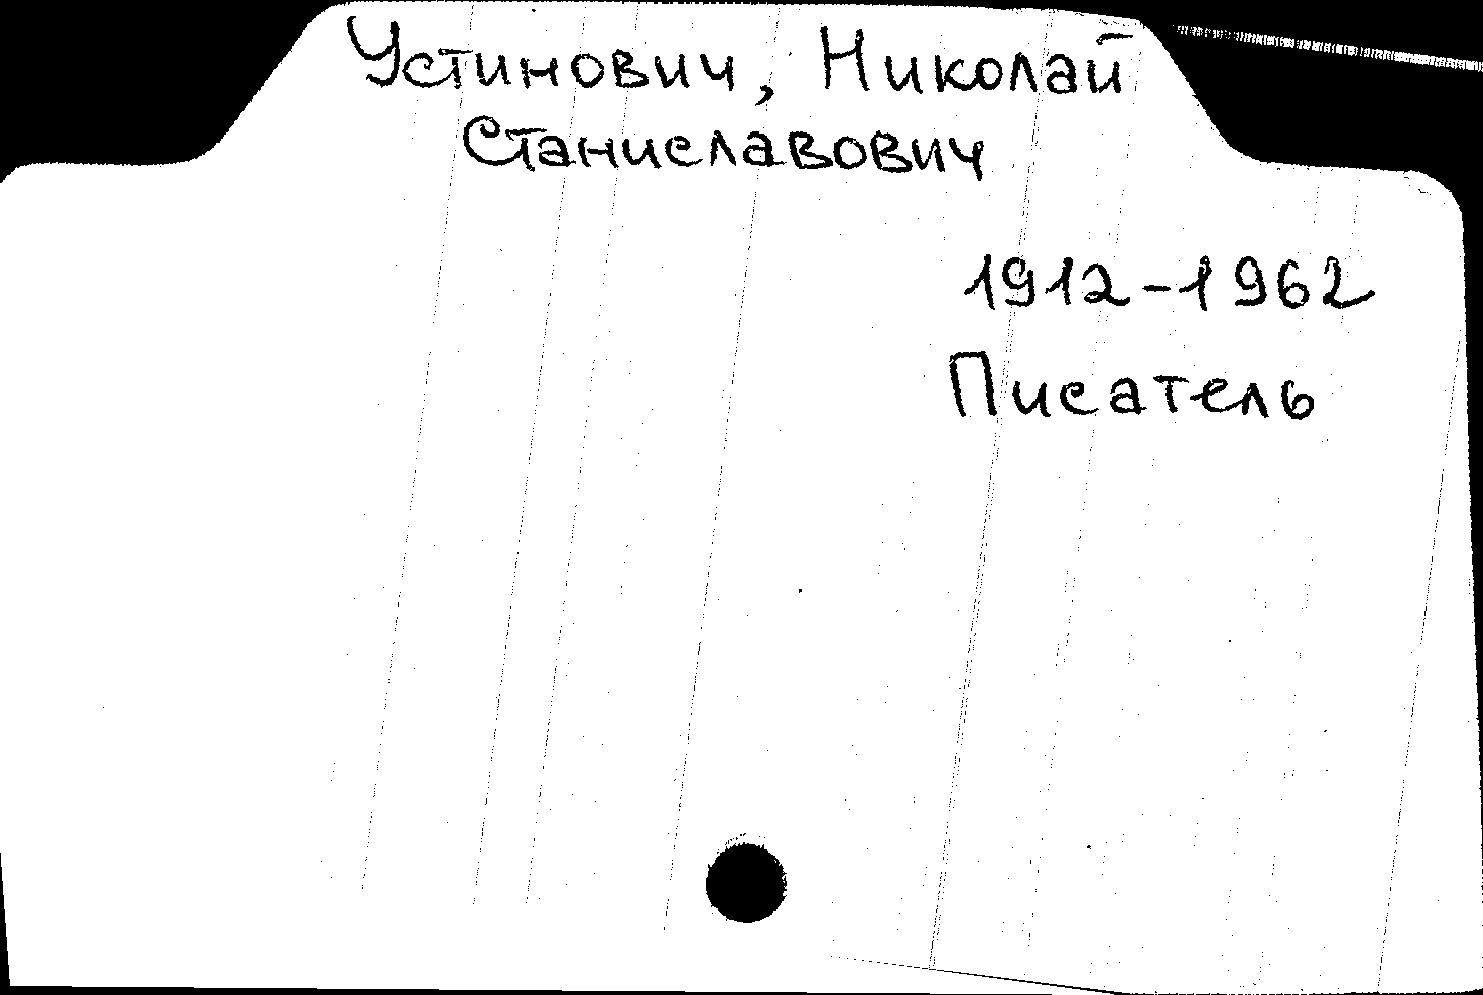 Устинович, Николай
Станиславович
1912-1962
Писатель